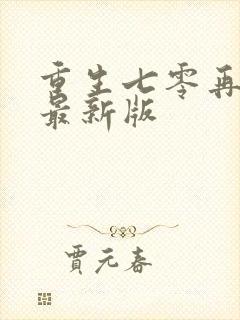 重生七零再
最新版
賈元春